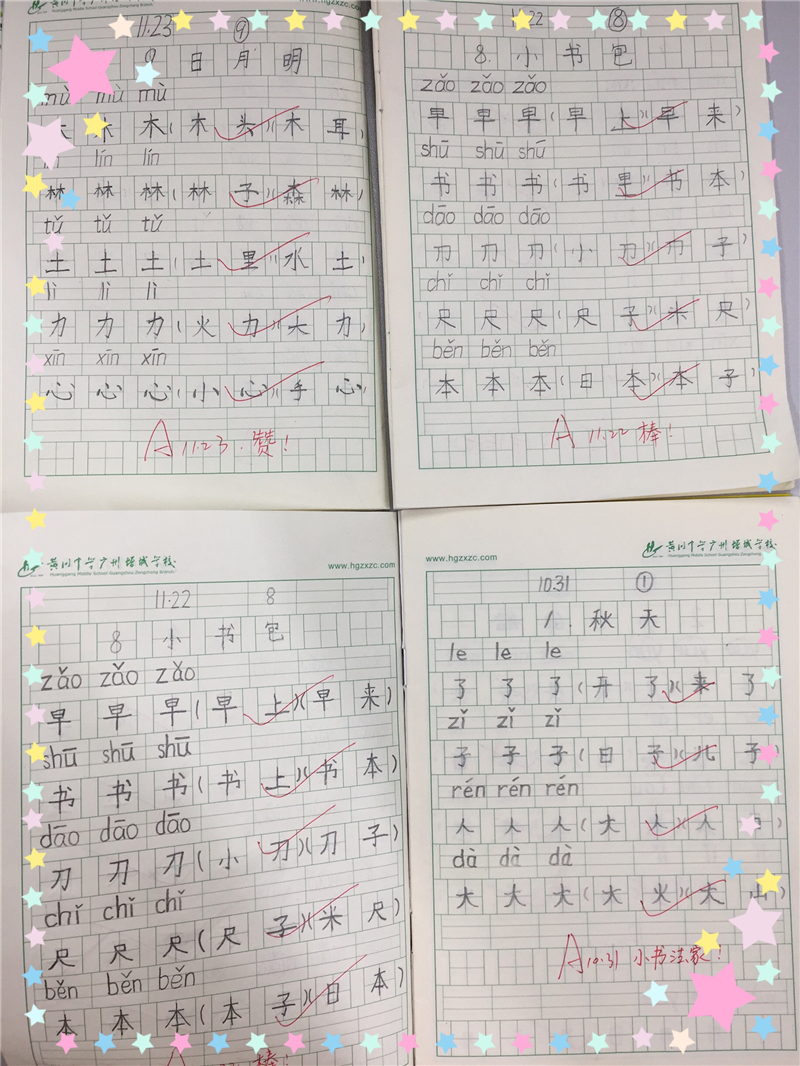 11.23 ⑨
9 日月明
mù mù mù
木 木(木头)(木耳)
lín lín
林 林 林(林子)(森林)
tǔ tǔ tǔ
土 土 土(土里)(水土)
lì lì lì
力 力 力(火力)(大力)
xīn xīn xīn
心 心 心(小心)(手心)
A 11.23.赞!
www.hgzxzc.com
11.22 ⑧
8. 小书包
zǎo zǎo zǎo
早 早 早(早上)(早来
shū shū shū
书 书 书(书里)(书本)
dāo dāo dāo
刀 刀 刀(小刀)(刀子)
chǐ chǐ chǐ
尺 尺 尺(尺子)(米尺)
běn běn běn
本 本 本(日本)(本子)
A 11.22 棒!
黄冈中学广州增城学校
Huanggang Middle School Guangzhou Zengcheng Branch
www.hgzxzc.com
11.22 8
8 小书包
zǎo zǎo zǎo
早 早 早(早上)(早来)
shū shū shū
书 书 书(书上)(书本)
dāo dāo dāo
刀 刀 刀(小刀)(刀子)
chǐ chǐ chǐ
尺 尺 尺(尺子)(米尺)
běn běn běn
本 本 本(本子)(日本)
A 棒!
www.hgzxzc.com
黄冈中学广州增城学校
Huanggang Middle School Guangzhou Zengcheng Branch
10.31 ①
1. 秋天
le le le
了 了 了(开了)(来了
zǐ zǐ zǐ
子 子 子(日子)(儿子)
rén rén rén
人 人 人(大人)(人
dà dà dà
大 大 大(大火)(大山)
A 10.31 小书法家!